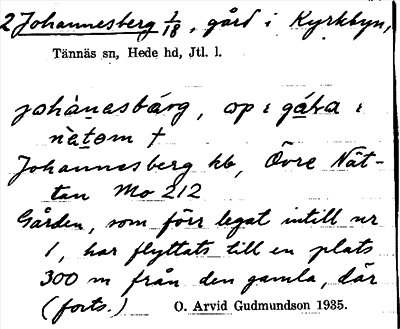 2 Johannesberg 2/18, gård i Kyrkbyn,
Tännäs sn, Hede hd, Jtl. l.
johànasbærg, op i gáḷa i
nàtom †
Johannesberg hb, Övre Nät-
tan Mo 212
Gården, som förr legat intill nr
1, har flyttats till en plats
300 m från den gamla, där
(forts.) O. Arvid Gudmundson 1935.